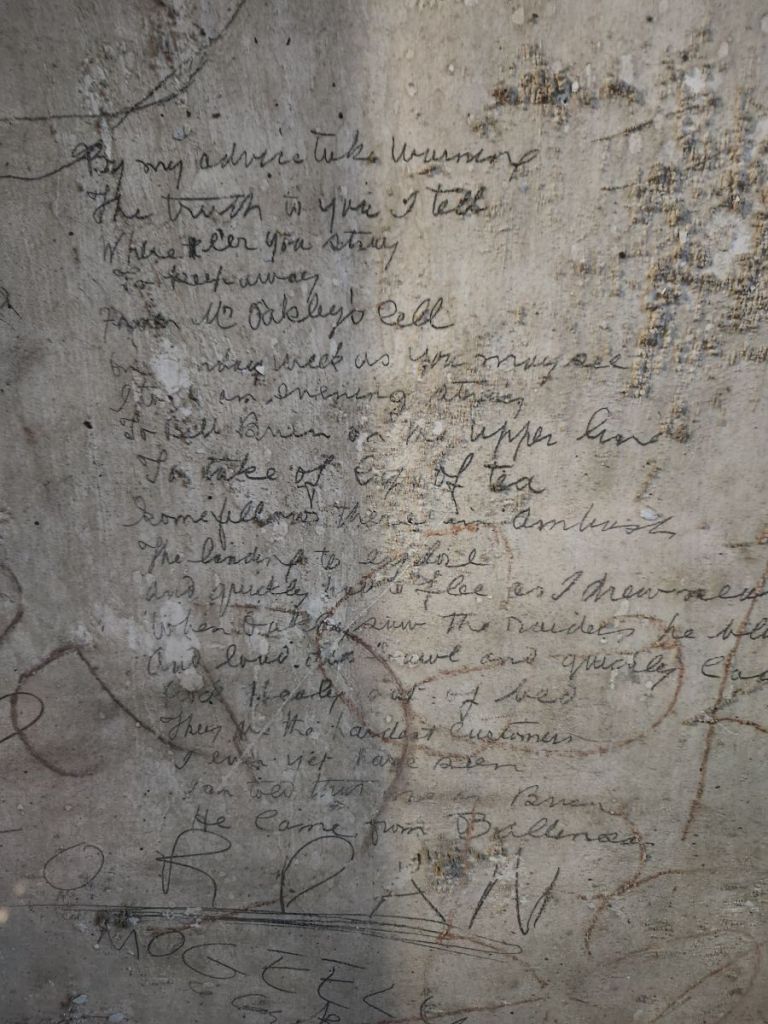 By my advice take warning
The truth to you I tell
Where ere you stray
To keep away
From Mr Oakley's Cell
week as you may see
an evening stray
To Bill Brien on the upper line
To take of Cup of tea
Some fellows there in ambush
The landing to explore
and quickly as I drew near
When Oakley saw the raiders he
And loud and quickly
out of bed
They the hardest Customers
I ever yet have seen
I am told that Brien
He Came from
ORDAN
MOGEELY